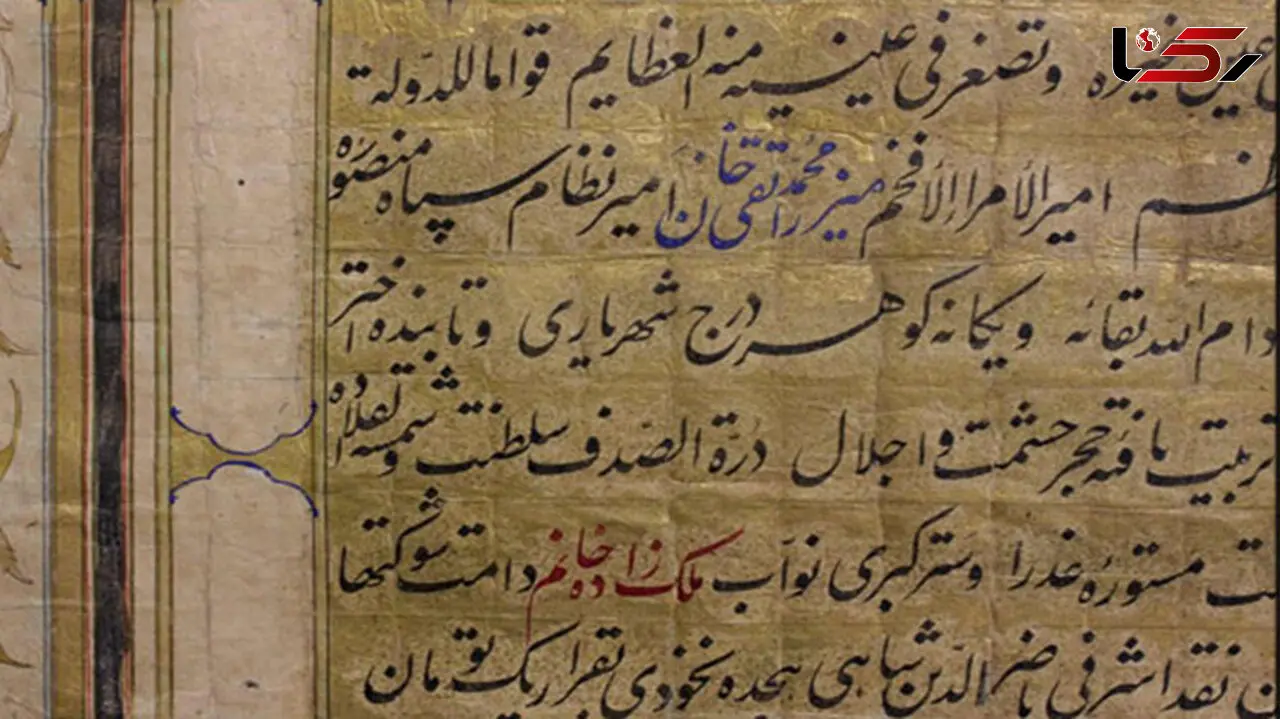 رکنا
وتصغر فی عینیه منه العظایم قواماللدولة
امیرالأمراءالأفخم میرزا محمدتقی خان امیرنظام سپاه منصوره
دام الله بقائه ویگانه گوهر درج شهریاری وتابنده اختر
تربیت یافته حجر حشمت واجلال درّة الصّدف سلطنت وشمسة القلاده
مستوره عذرا وستر کبری نوّاب ملک زاده خانم دامت شوکتها
نقد اشرفی ناصرالدّین شاهی هجده نخودی بقرار یک تومان